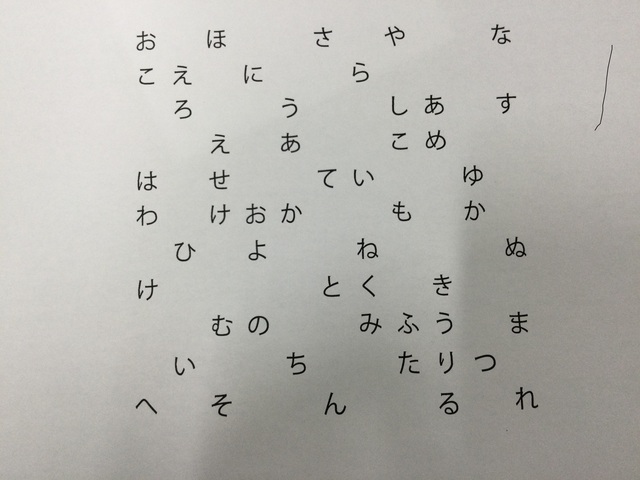 お ほ さ や な
こ え に ら
ろ う し あ す
え あ こ め
は せ て い ゆ
わ け お か も か
ひ よ ね ぬ
け と く き
む の み ふ う ま
い ち た り つ
へ そ ん る れ